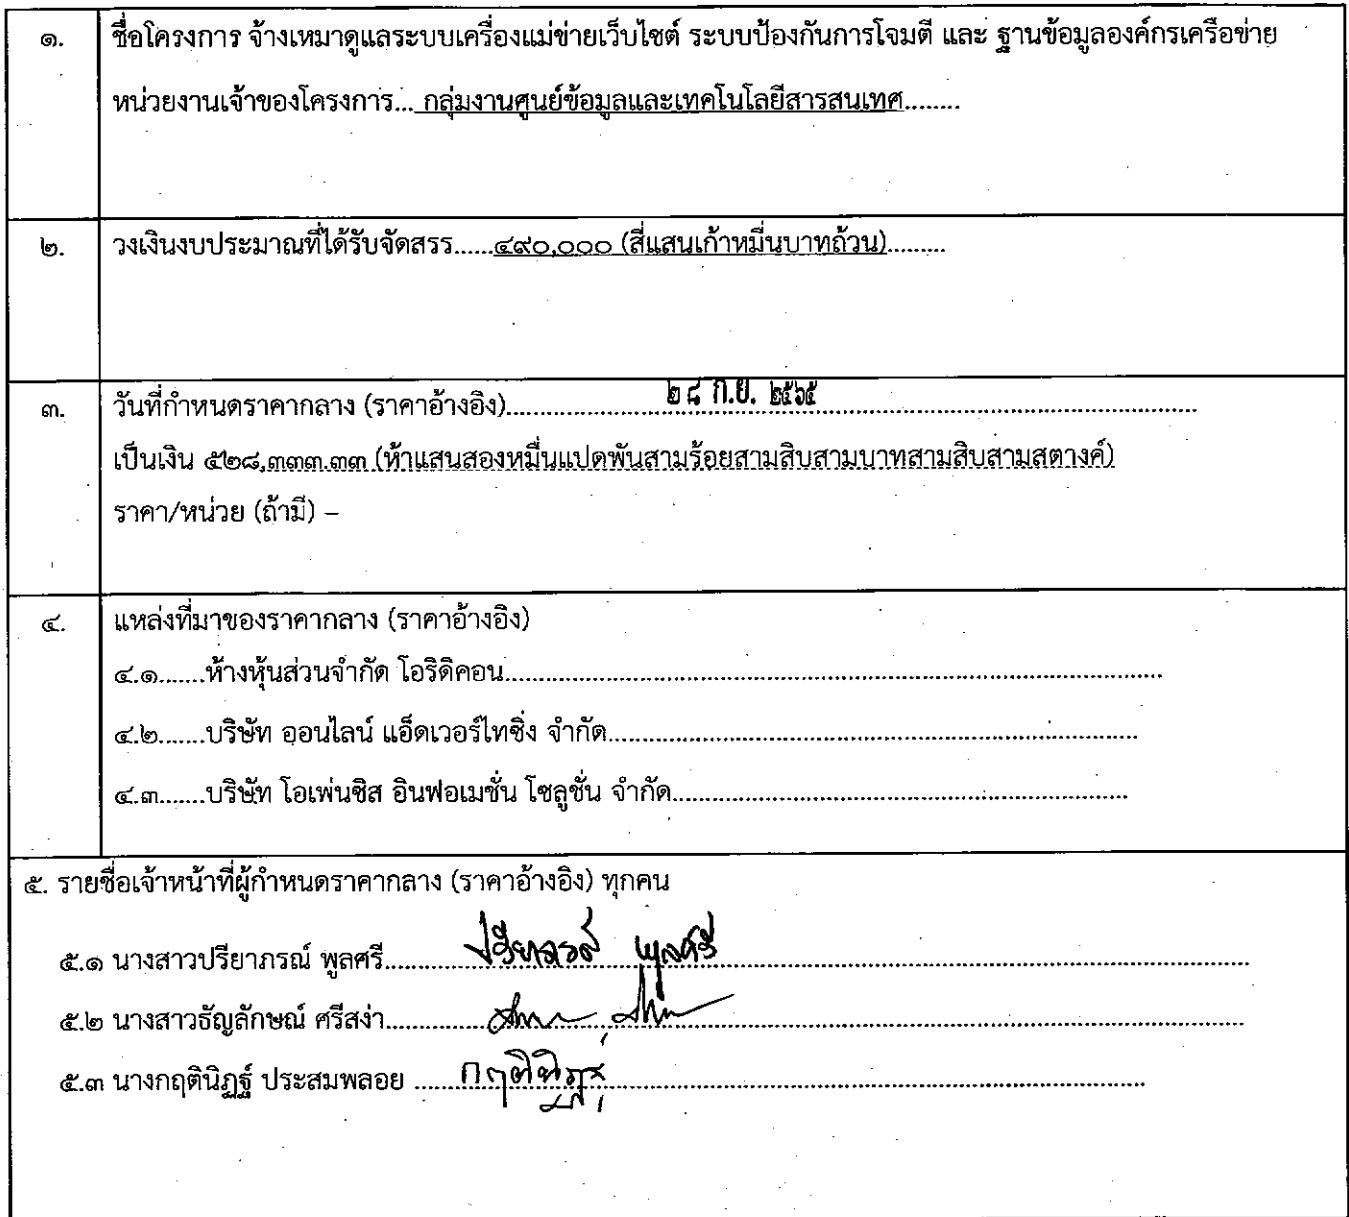 ๑. ชื่อโครงการ จ้างเหมาดูแลระบบเครื่องแม่ข่ายเว็บไซต์ ระบบป้องกันการโจมตี และ ฐานข้อมูลองค์กรเครือข่าย
หน่วยงานเจ้าของโครงการ... กลุ่มงานศูนย์ข้อมูลและเทคโนโลยีสารสนเทศ........
๒. วงเงินงบประมาณที่ได้รับจัดสรร......๔๙๐,๐๐๐ (สี่แสนเก้าหมื่นบาทถ้วน).........
๓. วันที่กำหนดราคากลาง (ราคาอ้างอิง)........ ๒๘ ก.ย. ๒๕๖๕ ........
เป็นเงิน ๕๒๘,๓๓๓.๓๓ (ห้าแสนสองหมื่นแปดพันสามร้อยสามสิบสามบาทสามสิบสามสตางค์)
ราคา/หน่วย (ถ้ามี) –
๔. แหล่งที่มาของราคากลาง (ราคาอ้างอิง)
๔.๑.......ห้างหุ้นส่วนจำกัด โอริดิคอน........
๔.๒.......บริษัท ออนไลน์ แอ็ดเวอร์ไทซิ่ง จำกัด........
๔.๓.......บริษัท โอเพ่นซิส อินฟอเมชั่น โซลูชั่น จำกัด........
๕. รายชื่อเจ้าหน้าที่ผู้กำหนดราคากลาง (ราคาอ้างอิง) ทุกคน
๕.๑ นางสาวปรียาภรณ์ พูลศรี........ ปรียาภรณ์ พูลศรี ........
๕.๒ นางสาวธัญลักษณ์ ศรีสง่า........
๕.๓ นางกฤตินิฏฐ์ ประสมพลอย ........ กฤตินิฏฐ์ ........